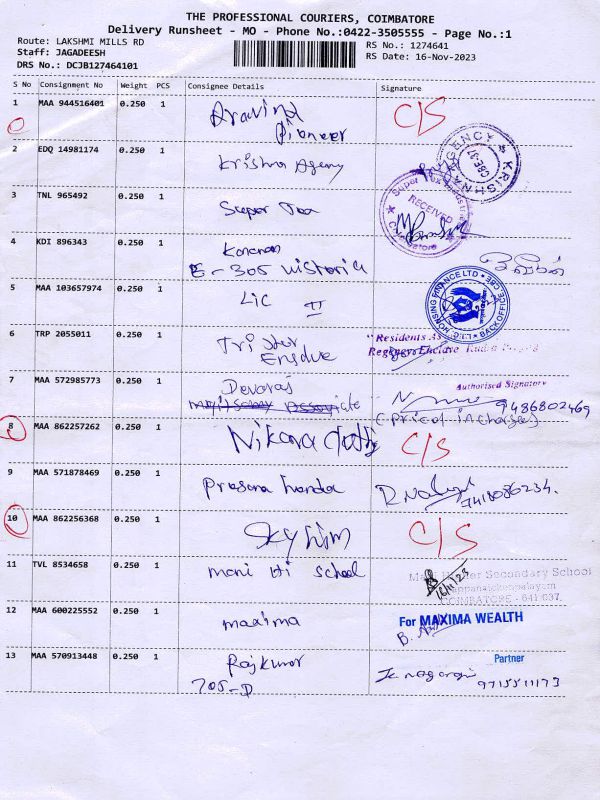 THE PROFESSIONAL COURIERS, COIMBATORE
Delivery Runsheet - MO - Phone No.:0422-3505555 - Page No.:1
Route: LAKSHMI MILLS RD
RS No.: 1274641
Staff: JAGADEESH
RS Date: 16-Nov-2023
DRS No.: DCJB127464101
S No Consignment No Weight PCS Consignee Details Signature
1 MAA 944516401 0.250 1 Aravind C/S
Pioneer
2 EDQ 14981174 0.250 1 Krishna Agency
KRISHNA AGENCY CBE-37
3 TNL 965492 0.250 1 Super Tex
Super Tex RECEIVED Coimbatore
4 KDI 896343 0.250 1
E-305 Victoria
5 MAA 103657974 0.250 1 LIC II
LIC HOUSING FINANCE LTD BACK OFFICE CBE
6 TRP 2055011 0.250 1
"Residents As
Regency Enclave
7 MAA 572985773 0.250 1 Devaraj
Authorised Signatory
9486802469
(Pricol in charge)
8 MAA 862257262 0.250 1 Nikara C/S
9 MAA 571878469 0.250 1 Prasana 7418086234.
10 MAA 862256368 0.250 1 C/S
11 TVL 8534658 0.250 1 Mani Hi School
16/11/23
Secondary School
COIMBATORE - 641 037.
12 MAA 600225552 0.250 1 maxima
For MAXIMA WEALTH
Partner
13 MAA 570913448 0.250 1 Rajkumar
705-D
9715511173